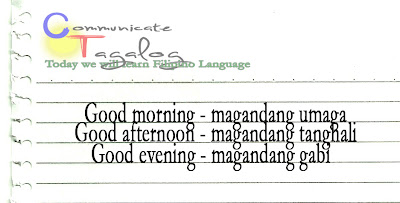 Communicate
Tagalog
Today we will learn Filipino Language
Good morning - magandang umaga
Good afternoon - magandang tanghali
Good evening - magandang gabi